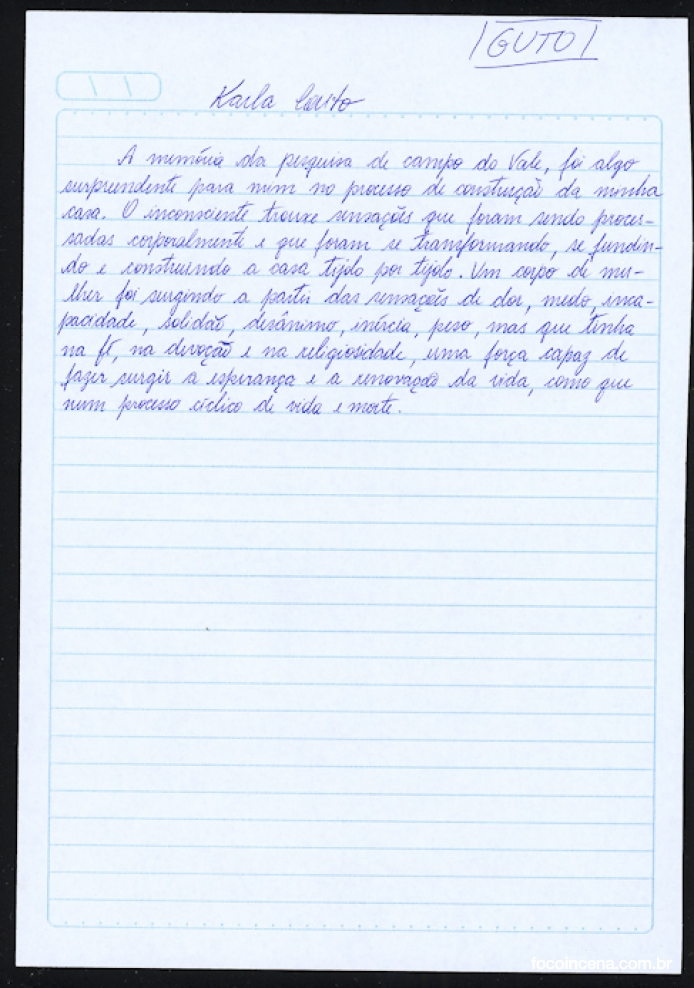 |GUTO|
Karla Couto
A memória da pesquisa de campo do Vale, foi algo
surpreendente para mim no processo de construição da minha
casa. O inconsciente trouxe sensações que foram sendo proces-
sadas corporalmente e que foram se transformando, se fundin-
do e construindo a casa tijolo por tijolo. Um corpo de mu-
lher foi surgindo a partir das sensações de dor, medo, inca-
pacidade, solidão, desânimo, inércia, peso, mas que tinha
na fé, na devoção e na religiosidade, uma força capaz de
fazer surgir a esperança e a renovação da vida, como que
num processo cíclico de vida e morte.
focoincena.com.br